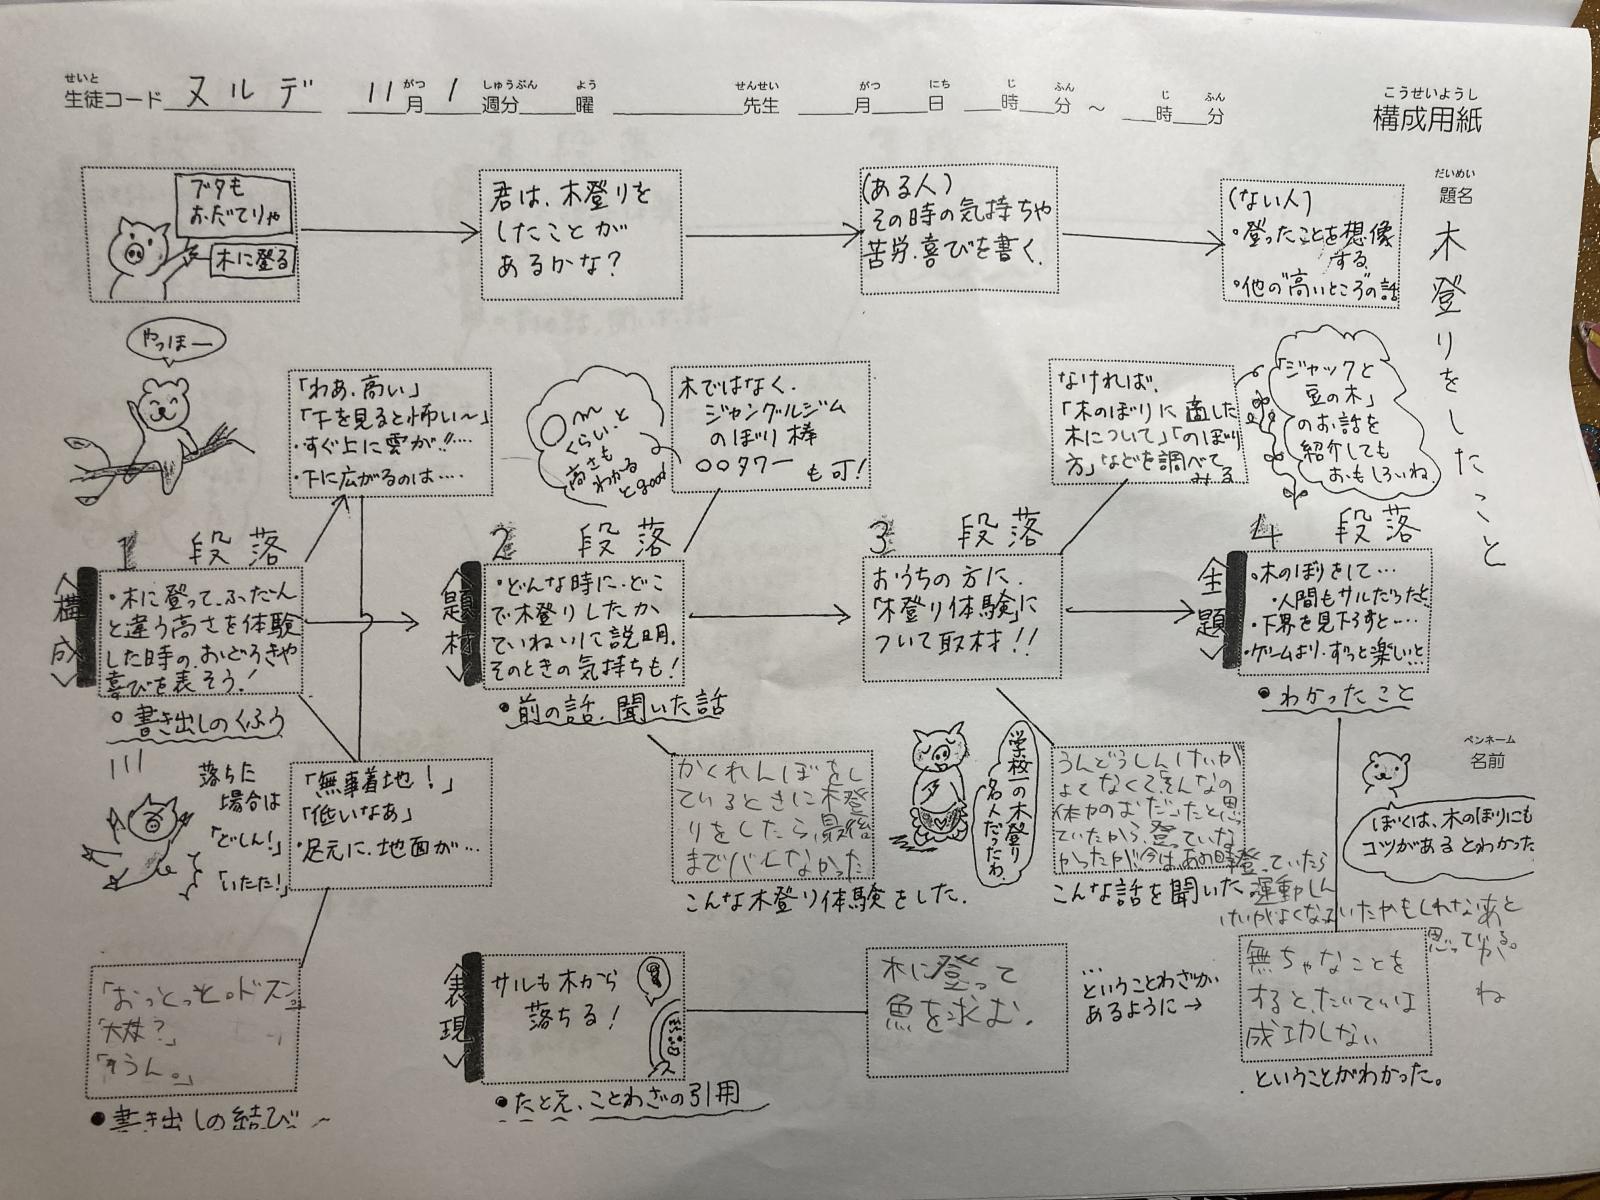 せいと
生徒コード ヌルデ 11月 1週分 曜 先生 月 日 時 分 ～ 時 分
がつ しゅうぶん よう せんせい がつ にち じ ふん じ ふん
こうせいようし
構成用紙
だいめい
題名
木登りをしたこと
ブタも
おだてりゃ
木に登る
君は、木登りを
したことが
あるかな?
(ある人)
その時の気持ちや
苦労・喜びを書く.
(ない人)
・登ったことを想像
する
・他の"高いところ"の話
やっほー
「わあ、高い」
「下を見ると怖い～」
・すぐ上に雲が!!….
・下に広がるのは….
○m
くらい、と
高さも
わかる
とgood
木ではなく、
ジャングルジム
のぼり棒
○○タワー
も可!
なければ、
「木のぼりに適した
木について」「のぼり
方」などを調べて
みる
「ジャックと
豆の木」
のお話を
紹介しても
おもしろいね.
1 段落
2 段落
3 段落
4 段落
〈構成〉
・木に登って、ふだん
と違う高さを体験
した時の、おどろきや
喜びを表そう!
・書き出しのくふう
〈題材〉
・どんな時に、どこ
で木登りしたか
ていねいに説明.
そのときの気持ちも!
・前の話、聞いた話
おうちの方に、
「木登り体験」に
ついて取材!!
〈主題〉
・木のぼりをして…
・人間もサルだったと
・下界を見下ろすと….
・ゲームより、ずっと楽しいと
・わかったこと
落ちた
場合は
「どしん!」
「いたた!」
「無事着地!」
「低いなあ」
・足元に、地面が…
かくれんぼをし
ているときに木登
りをしたら最後
までバレなかった
こんな木登り体験をした.
学校一の木登り
名人だったわ.
うんどうしんけいが
よくなくて、そんなの
体力のおだったと思
っていたから、登っていな
かったが、今は、あの時登っていたら
運動しん
けいがよくなっていたかもしれないなあと
思っている。
こんな話を聞いた
ペンネーム
名前
ぼくは、木のぼりにも
コツがあるとわかった
がね
「おっとっと。ドスン」
「大丈夫?」
「ううん。」
・書き出しの結び
〈表現〉
サルも木から
落ちる!
・たとえ、ことわざの引用
木に登って
魚を求む.
…
ということわざが
あるように→
無ちゃなことを
すると、たいていは
成功しない
ということがわかった。